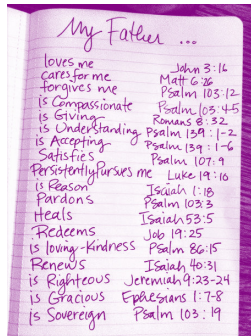 My Father ...
loves me John 3:16
cares for me Matt 6:26
forgives me Psalm 103:12
is Compassionate Psalm 103:4-5
is Giving Romans 8:32
is Understanding Psalm 139:1-2
is Accepting Psalm 139:1-6
Satisfies Psalm 107:9
Persistently Pursues me Luke 19:10
is Reason Isaiah 1:18
Pardons Psalm 103:3
Heals Isaiah 53:5
Redeems Job 19:25
is loving-kindness Psalm 86:15
Renews Isaiah 40:31
is Righteous Jeremiah 9:23-24
is Gracious Ephesians 1:7-8
is Sovereign Psalm 103:19